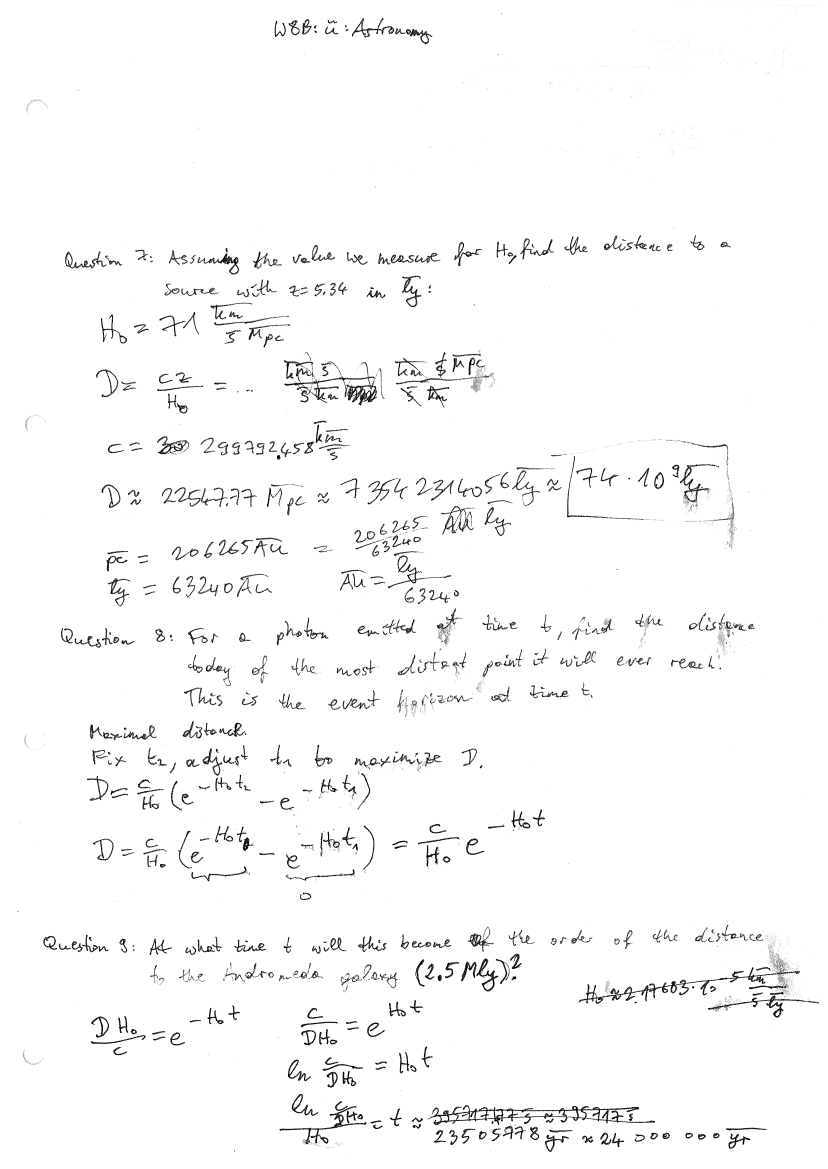 W8B: ü: Astronomy
Question 7: Assuming the value we measure for H₀, find the distance to a
source with z=5.34 in l̅y̅:
H₀ = 71 k̅m̅ / s̅ M̅p̅c̅
D = cz / H₀ = ... k̅m̅ s̅ M̅p̅c̅ / s̅ k̅m̅
c = 299792.458 k̅m̅ / s̅
D ≈ 22547.77 M̅p̅c̅ ≈ 73542314056 l̅y̅ ≈ 74 · 10⁹ l̅y̅
p̅c̅ = 206265 A̅u̅ = 206265 / 63240 l̅y̅
l̅y̅ = 63240 A̅u̅ A̅u̅ = l̅y̅ / 63240
Question 8: For a photon emitted at time t, find the distance
today of the most distant point it will ever reach.
This is the event horizon at time t.
Maximal distance.
Fix t₂, adjust t₁ to maximize D.
D = c/H₀ (e^(-H₀t₂) - e^(-H₀t₁))
D = c/H₀ (e^(-H₀t₂) - e^(-H₀t₁)) = c/H₀ e^(-H₀t)
0
Question 9: At what time t will this become of the order of the distance
to the Andromeda galaxy (2.5 Mly)?
H₀ ≈ 2.17683 · 10^(-5) k̅m̅ / s̅ l̅y̅
DH₀/c = e^(-H₀t) c/DH₀ = e^(H₀t)
ln c/DH₀ = H₀t
(ln c/DH₀)/H₀ = t ≈
23505778 y̅r̅ ≈ 24 000 000 y̅r̅